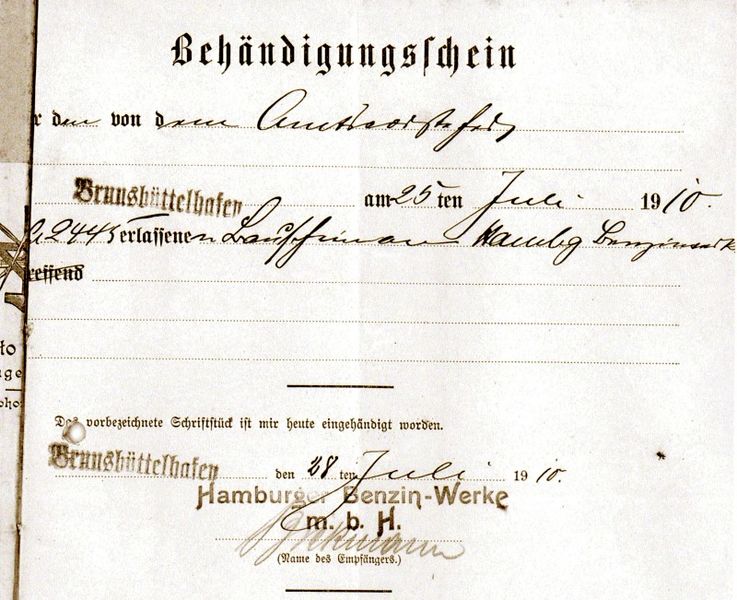 Behändigungsschein
r den von dem Amtsvorsteher
Brunsbüttelhafen am 25 ten Juli 1910.
2445 erlassenen Hambg Benzinwerk
reffend
Das vorbezeichnete Schriftstück ist mir heute eingehändigt worden.
Brunsbüttelhafen den 28 ten Juli 1910.
Hamburger Benzin-Werke
m. b. H.
(Name des Empfängers.)